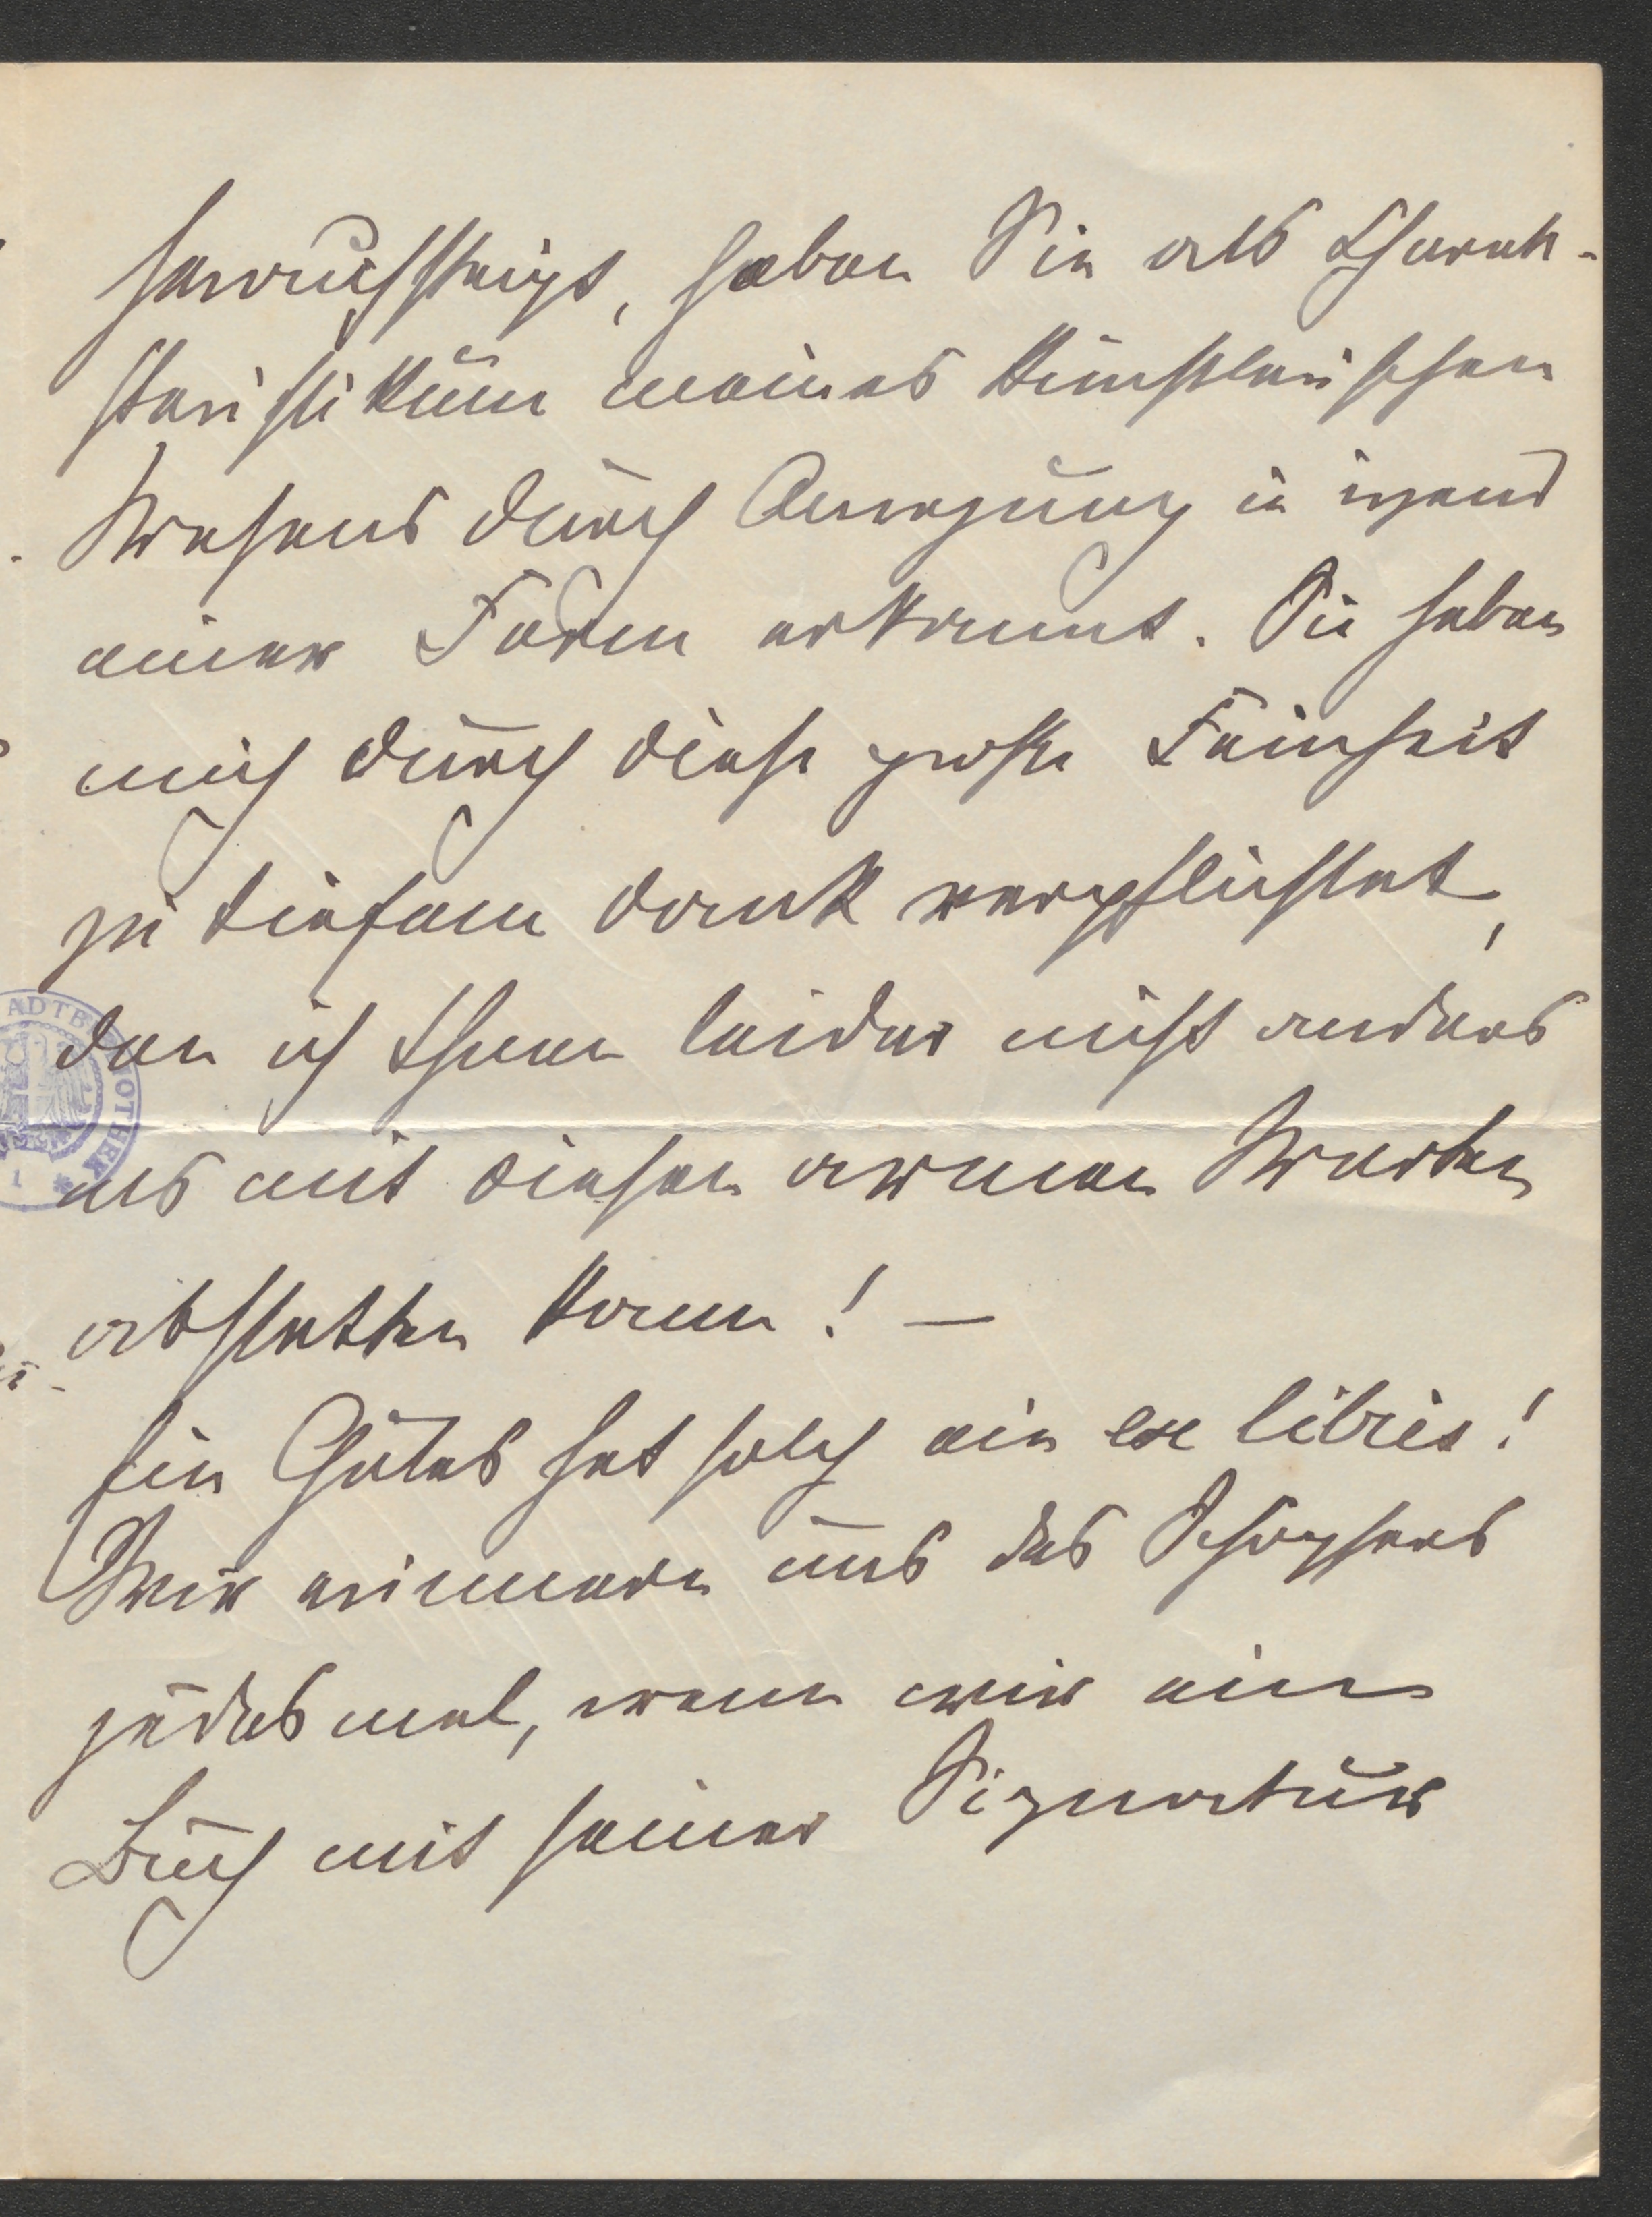 heraussteigt, haben Sie als Charak-
teristikum meines künstlerischen
Wesens durch Anregung in irgend
einer Form erkannt. Sie haben
mich durch diese große Feinheit
zu tiefem Dank verpflichtet,
den ich Ihnen leider nicht anders
als mit diesen armen Worten
abstatten kann! —
Ein Gutes hat solch ein ex libris!
Wir erinnern uns des Schöpfers
jedesmal, wenn wir ein
Buch mit seiner Signatur